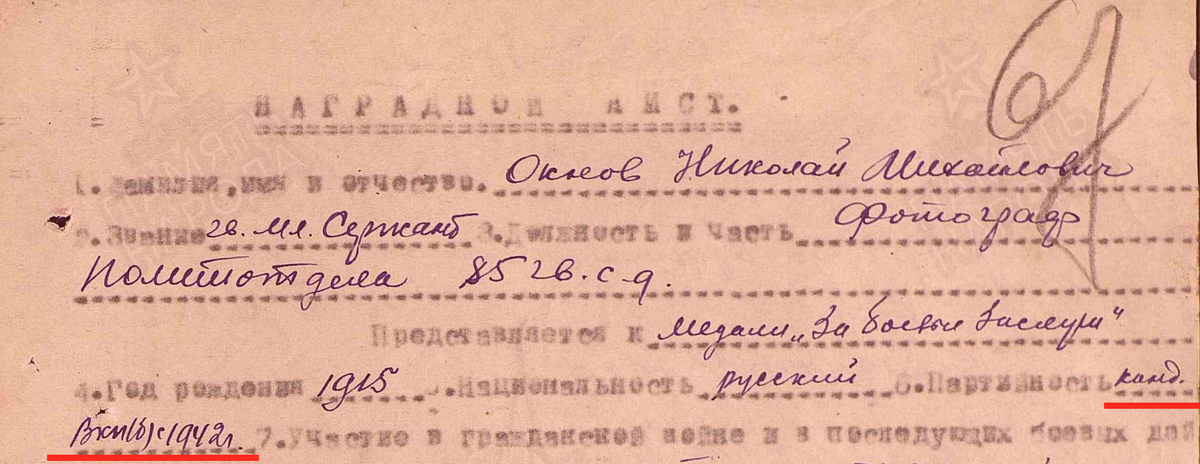 НАГРАДНОЙ ЛИСТ.
1.Фамилия,имя и отчество. Окнов Николай Михайлович
2.Звание гв. мл. Сержант 3.Должность и часть фотограф
Политотдела 85 гв. с д.
Представляется к медали „За боевые Заслуги"
4.Год рождения 1915 5.Национальность русский 6.Партийность канд.
ВКП(б) с 1942 г. 7.Участие в гражданской войне и в последующих боевых дей